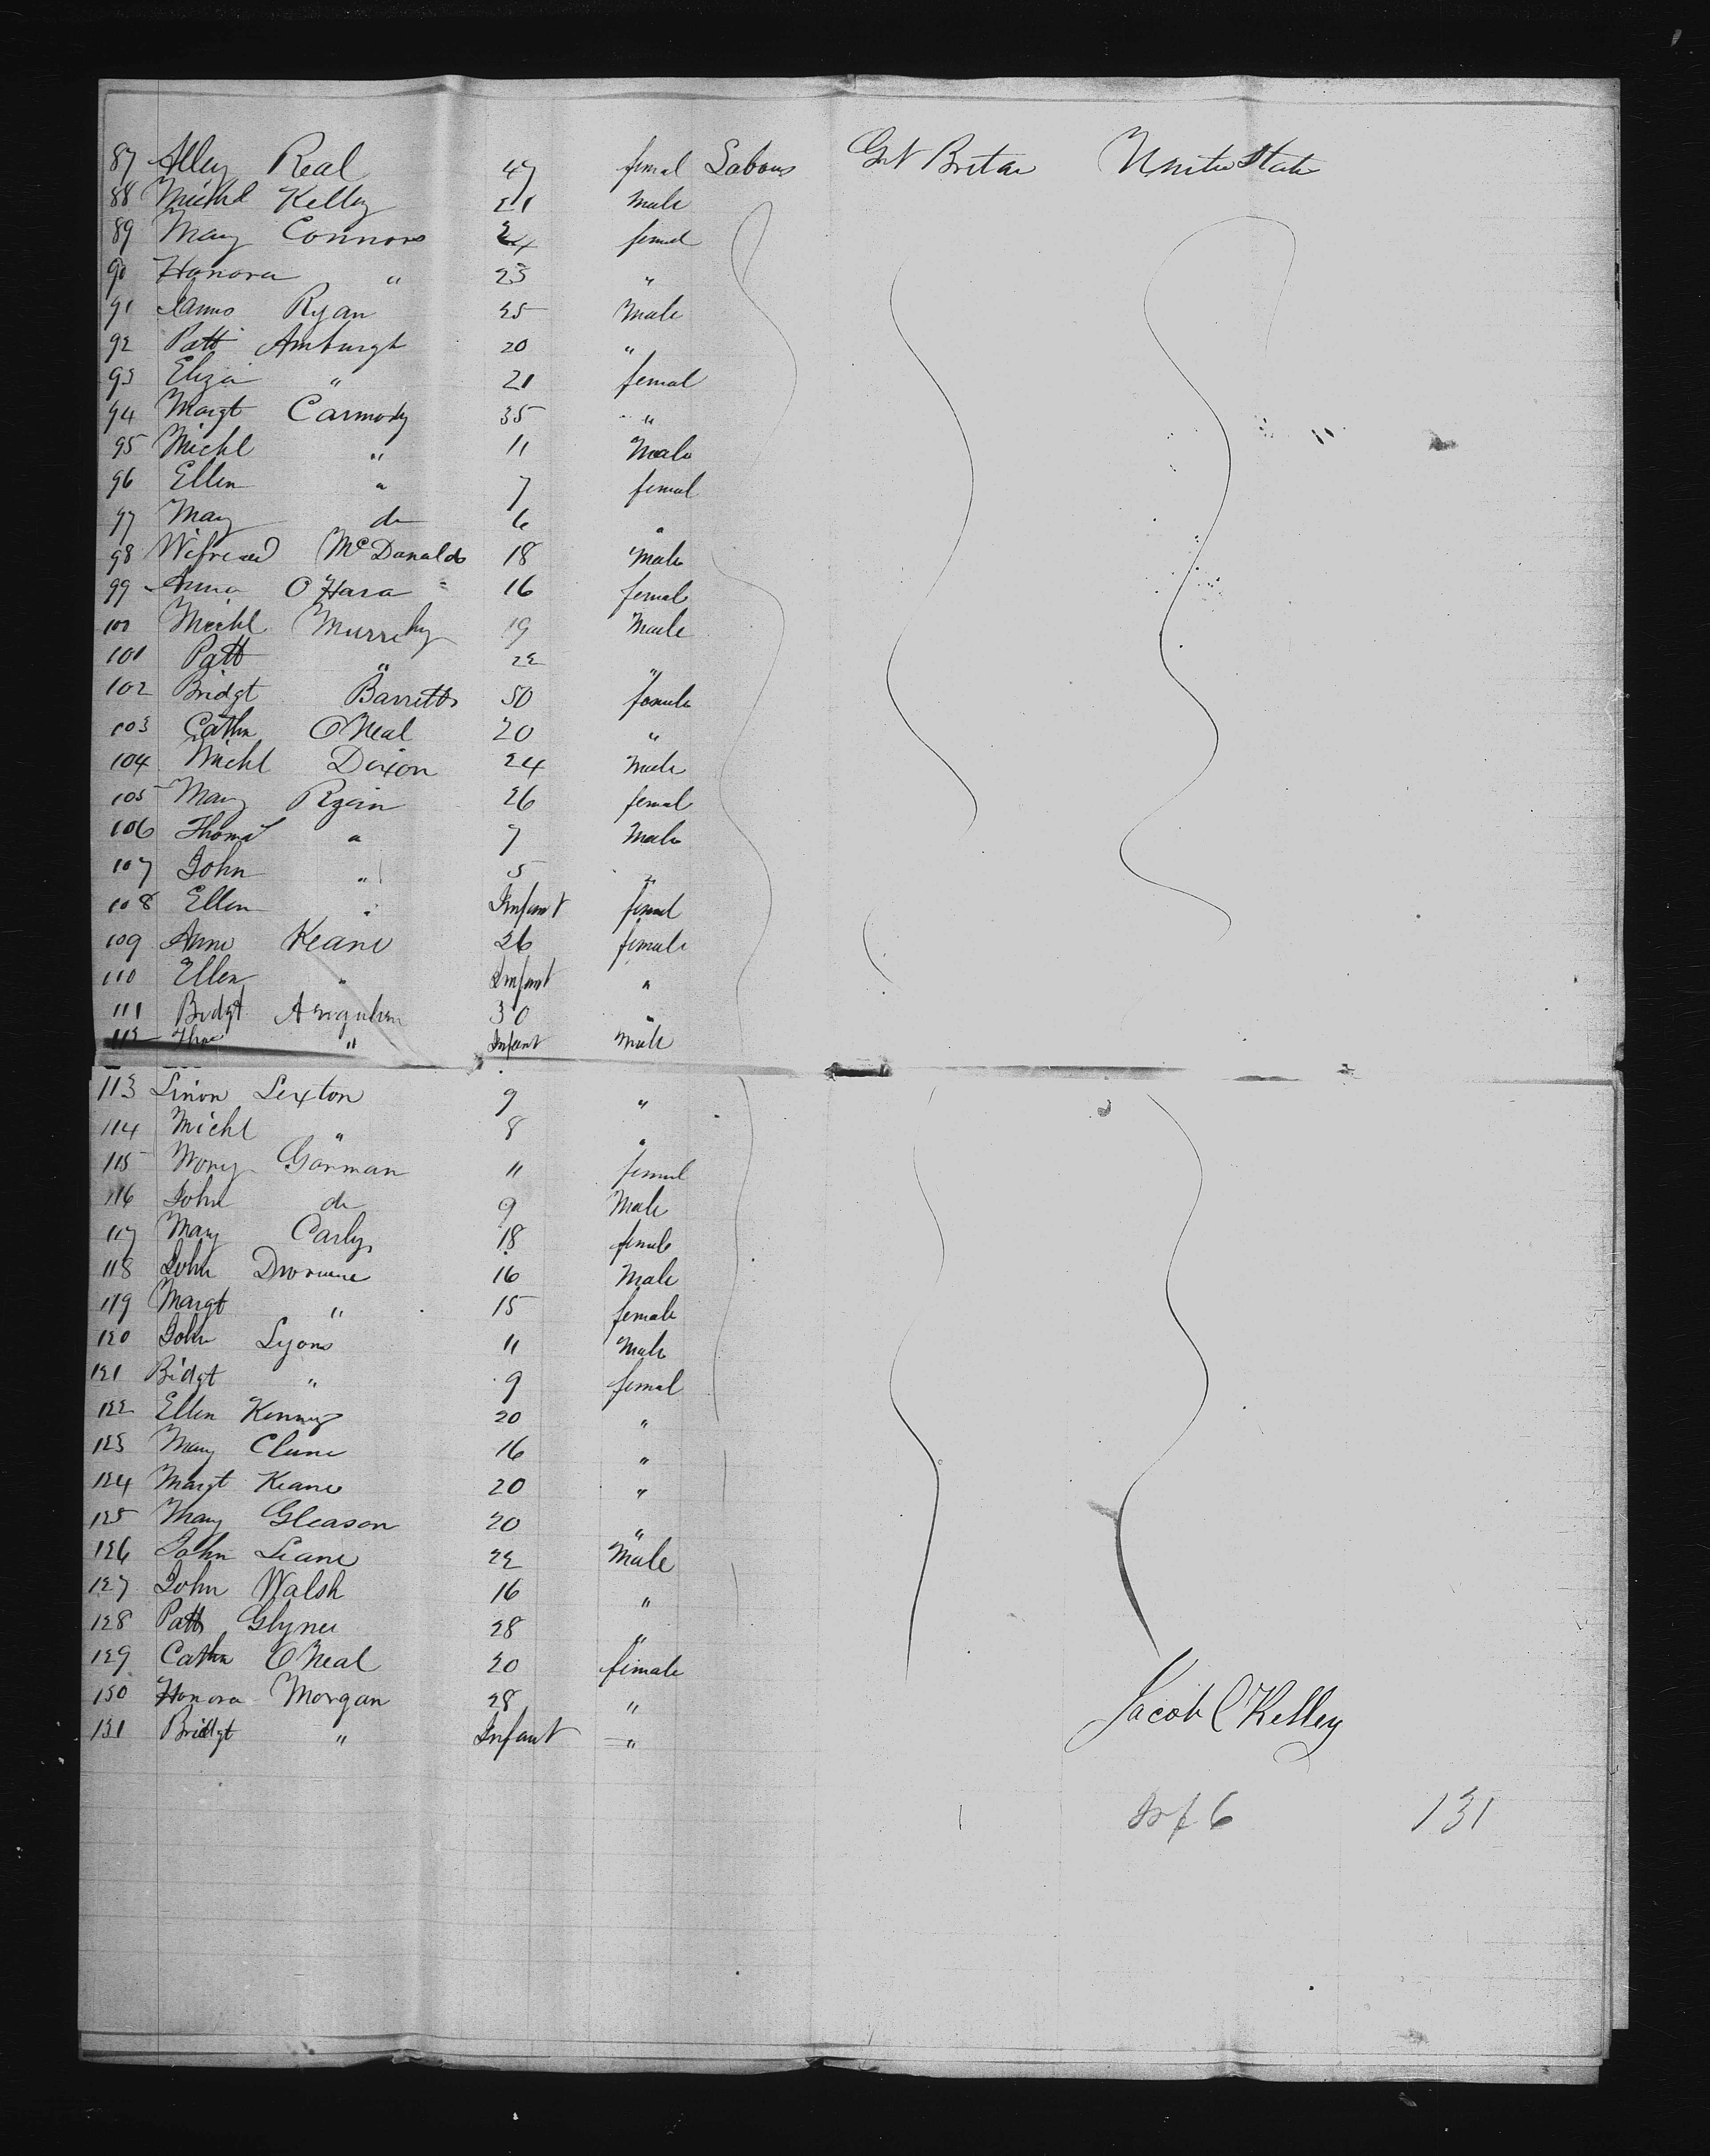 87 Alley Real 47 femal Labous Grt Britan United State
88 Michl Kelley 21 Male
89 Mary Connors 24 femal
90 Hanora " 23 "
91 James Ryan 25 Male
92 Patt Amburgh 20 "
93 Eliza " 21 femal
94 Margt Carmody 35 "
95 Michl " 11 Male
96 Ellen " 7 femal
97 Mary do 6 "
98 McDonald 18 Male
99 Anna O Hara 16 femal
100 Michl Murrihy 19 Male
101 Patt " 22 "
102 Bridgt Barretts 50 female
103 Cathn O Neal 20 "
104 Michl Dixon 24 Male
105 Mary Ryan 26 femal
106 Thomas " 7 Male
107 John " 5 "
108 Ellen " Infant femal
109 Anne Keane 26 female
110 Ellen " Infant "
111 Bridgt 30 "
112 Thos " Infant Male
113 Sexton 9 "
114 Michl " 8 "
115 Gorman 11 femal
116 John do 9 Male
117 Mary 18 female
118 John 16 Male
119 Margt " 15 female
120 John Lyons 11 Male
121 Bidgt " 9 femal
122 Ellen Kenny 20 "
123 Mary Clune 16 "
124 Margt Keane 20 "
125 Mary Gleason 20 "
126 John 22 Male
127 John Walsh 16 "
128 Patt 28 "
129 Cathn O Neal 20 female
130 Honora Morgan 28 "
131 Bridgt " Infant "
Jacob C Kelley
Inf 6 131